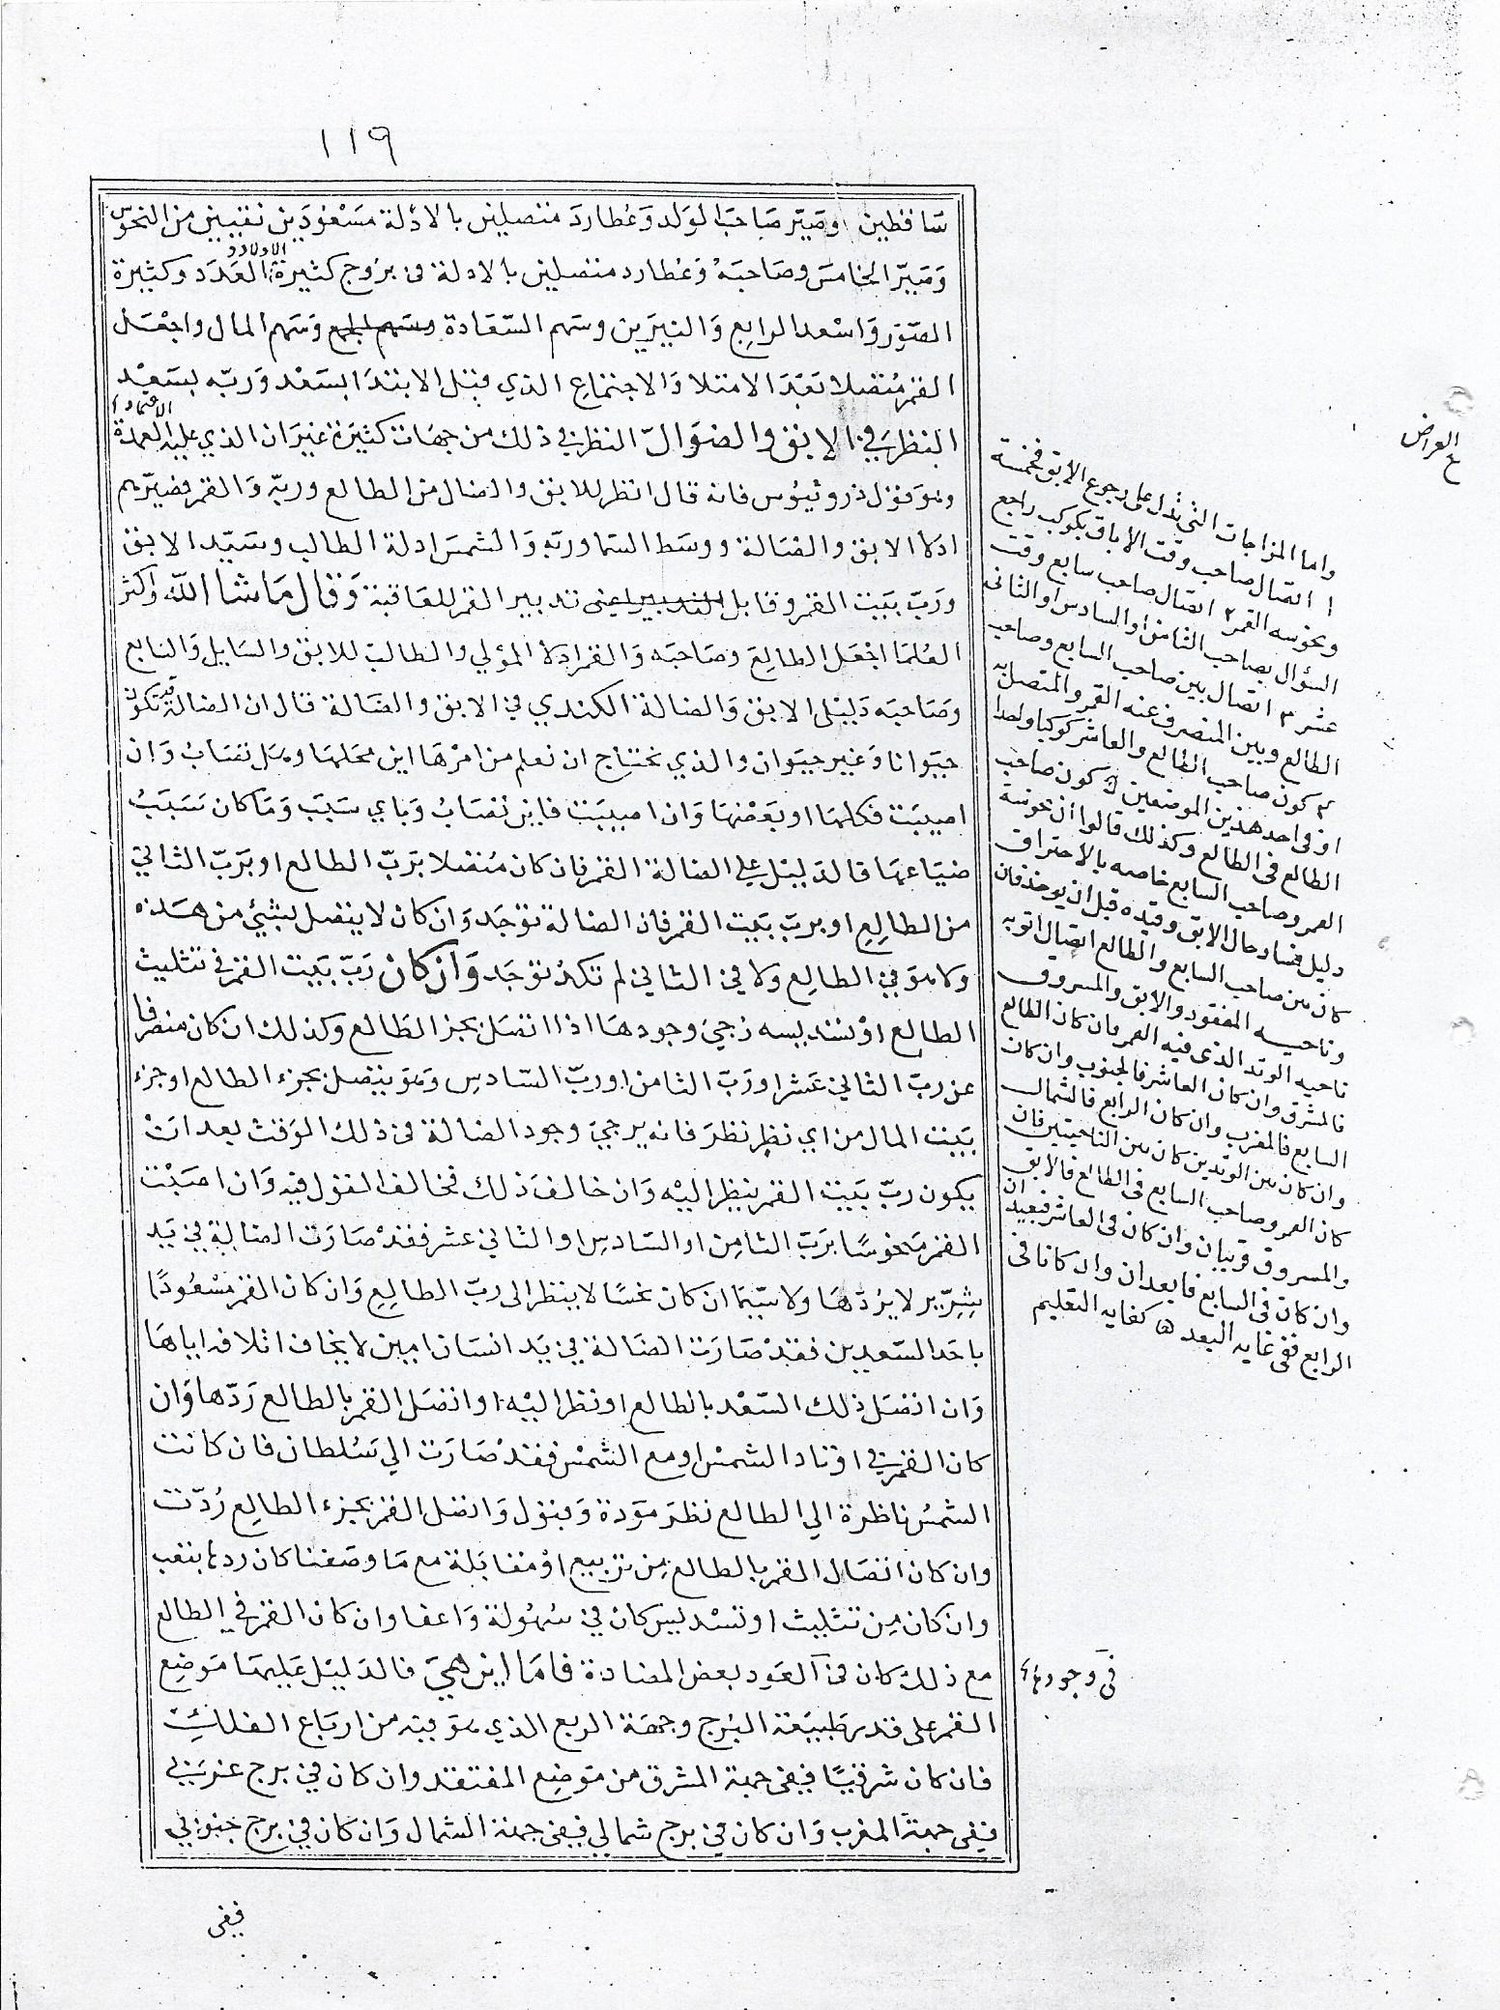 ١١٩
ساقطين وصيّر صاحب الولد وعطارد متصلين بالادلة مسعودين نقيين من النحوس
وصيّر الخامس وصاحبه وعطارد متصلين بالادلة فى بروج كثيرة الاولاد العدد وكثيرة
الصور واسعد الرابع والنيرين وسهم السعادة وسهم المال واجعل
القمر متصلا بعد الامتلا والاجتماع الذي قبل الابتدا بسعد وربه بسعيد
النظر في الابق والضوالّ النظر في ذلك من جهات كثيرة غير ان الذي عليه العمدة
وهو قول ذروثيوس فانه قال انظر للابق والضال من الطالع وربّه والقمر فصيّرهم
ادلا الابق والضالة ووسط السما وربه والشمس ادلة الطالب وسيّد الابق
وربّ بيت القمر وقابل تدبير القمر للعاقبة وقال ما شا الله واكثر
العلما اجعل الطالع وصاحبه والقمر ادلا المولي والطالب للابق والسايل والسابع
وصاحبه دليلى الابق والضالة الكندي في الابق والضالة قال ان الضالة قد تكون
حيوانا وغير حيوان والذي نحتاج ان نعلم من امرها اين محلها وهل تصاب وان
اصيبت فكلها او بعضها وان اصيبت فاين تصاب وباي سبب وما كان سبب
ضياعها فالدليل علي الضالة القمر فان كان متصلا بربّ الطالع او بربّ الثاني
من الطالع او برب بيت القمر فان الضالة توجد وان كان لا يتصل بشئ من هذه
ولا هو في الطالع ولا في الثاني لم تكد توجد وان كان ربّ بيت القمر في تثليث
الطالع او تسديسه رجي وجودها اذا اتصل بجز الطالع وكذلك ان كان منصرفا
عن ربّ الثاني عشر او ربّ الثامن او ربّ السادس وهو يتصل بجزء الطالع او جزء
بيت المال من اي نظر نظر فانه يرجي وجود الضالة فى ذلك الوقت بعد ان
يكون ربّ بيت القمر ينظر اليه وان خالف ذلك فخالف القول فيه وان اصبت
القمر منحوسا بربّ الثامن او السادس او الثاني عشر فقد صارت الضالة في يد
شرّير لا يردّها ولا سيّما ان كان نحسا لا ينظر الى ربّ الطالع وان كان القمر مسعودا
باحد السعدين فقد صارت الضالة في يد انسان امين لا يخاف اتلافه اياها
وان اتصل ذلك السعد بالطالع او نظر اليه او اتصل القمر بالطالع ردّها وان
كان القمر في اوتاد الشمس او مع الشمس فقد صارت الي سلطان فان كانت
الشمس ناظرة الي الطالع نظر مودة وقبول واتصل القمر بجزء الطالع ردّت
وان كان اتصال القمر بالطالع من تربيع او مقابلة مع ما وصفنا كان ردها بتعب
وان كان من تثليث او تسديس كان في سهولة واعفا وان كان القمر في الطالع
مع ذلك كان فى العود بعض المضادة فاما اين هي فالدليل عليها موضع
القمر على قدر طبيعة البرج وجهة الربع الذي هو فيه من ارباع الفلك
فان كان شرقيا ففى جهة المشرق من موضع المفتقد وان كان في برج غربي
ففى جهة المغرب وان كان في برج شمالي ففى جهة الشمال وان كان في برج جنوبي
ففى
واما المزاجات التى تدل على رجوع الابق فخمسة
١ اتصال صاحب وقت الاباق بكوكب راجع
ونحوسه القمر ٢ اتصال صاحب سابع وقت
السؤال بصاحب الثامن او السادس او الثانى
عشر ٣ اتصال بين صاحب السابع وصاحب
الطالع وبين المنصرف عنه القمر والمتصل به
٤ كون صاحب الطالع والعاشر كوكبا واحدا
او فى احد هذين الموضعين كون صاحب
الطالع فى الطالع وكذلك قالوا ان نحوسة
القمر وصاحب السابع خاصه بالاحتراق
دليل فساد حال الابق وقيده قبل ان يوخذ فان
كان بين صاحب السابع والطالع اتصال اتوبه
وناحيه المفقود والابق والمسروق
ناحيه الوتد الذى فيه القمر فان كان الطالع
فالمشرق وان كان العاشر فالجنوب وان كان
السابع فالمغرب وان كان الرابع فالشمال
وان كان بين الوتدين كان بين الناحيتين فان
كان القمر وصاحب السابع فى الطالع فالابق
والمسروق قريبان وان كان فى العاشر فبعيدان
وان كان فى السابع فابعدان وان كانا فى
الرابع ففى غايه البعد كفايه التعليم
فى وجودها